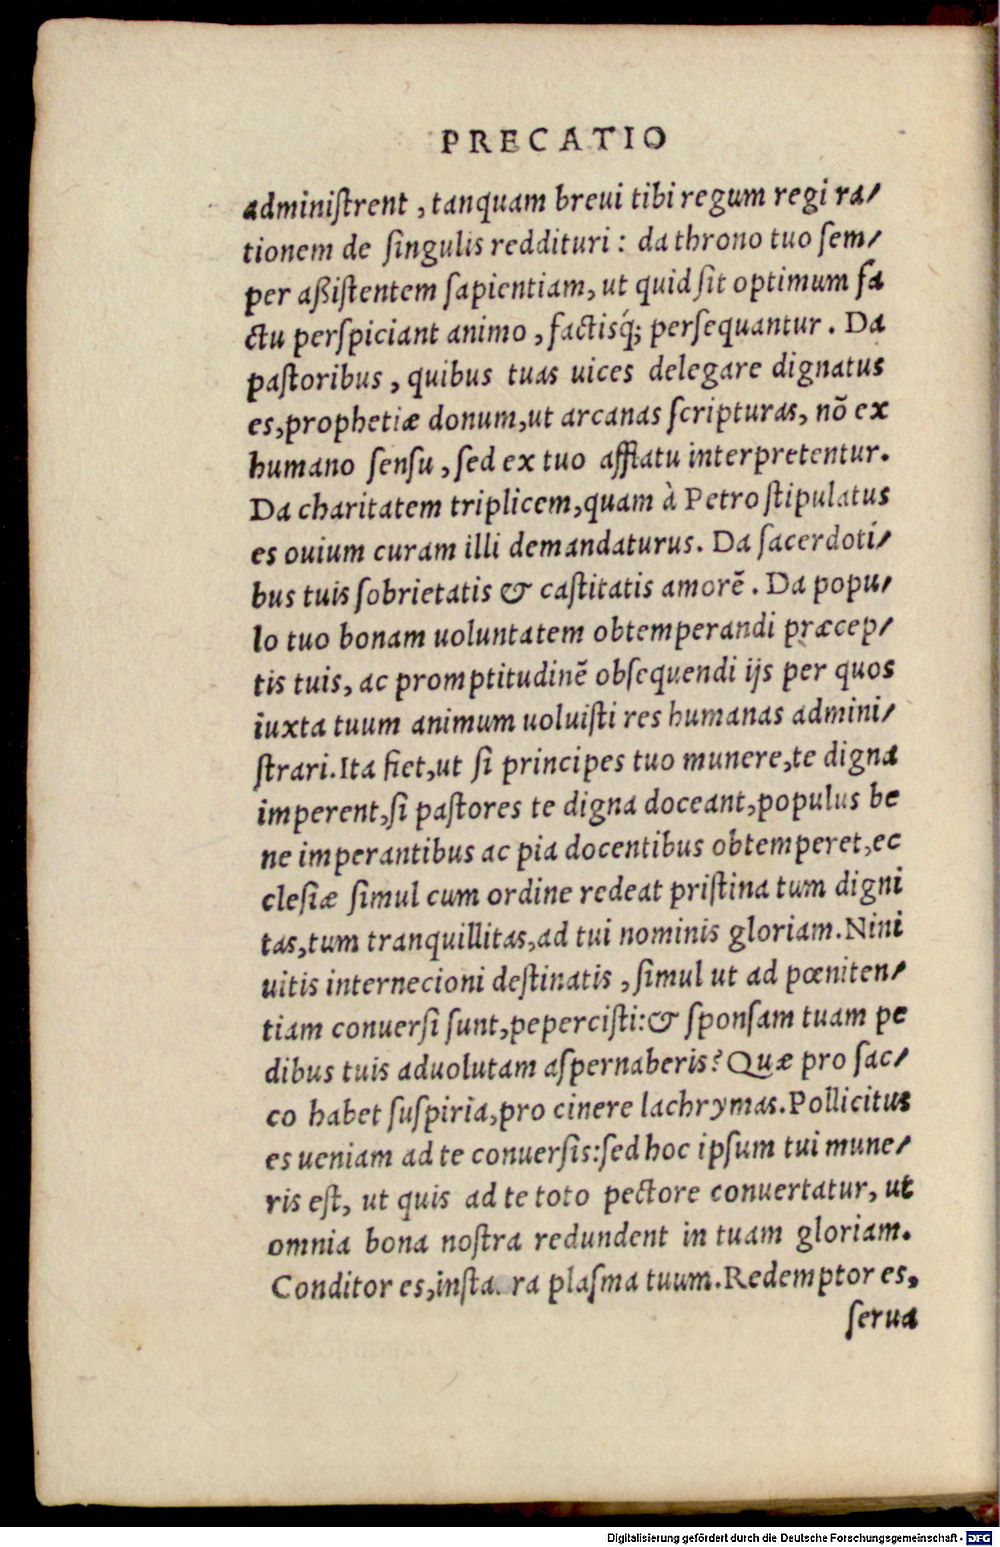 PRECATIO
adminiſtrent, tanquam breui tibi regum regi ra/
tionem de ſingulis reddituri: da throno tuo ſem/
per aßiſtentem ſapientiam, ut quid ſit optimum fa
ctu perſpiciant animo, factisq́; perſequantur. Da
paſtoribus, quibus tuas uices delegare dignatus
es, prophetiæ donum, ut arcanas ſcripturas, nõ ex
humano ſenſu, ſed ex tuo afflatu interpretentur.
Da charitatem triplicem, quam à Petro ſtipulatus
es ouium curam illi demandaturus. Da ſacerdoti/
bus tuis ſobrietatis & caſtitatis amorē. Da popu/
lo tuo bonam uoluntatem obtemperandi præcep/
tis tuis, ac promptitudinē obſequendi ijs per quos
iuxta tuum animum uoluiſti res humanas admini/
ſtrari. Ita fiet, ut ſi principes tuo munere, te digna
imperent, ſi paſtores te digna doceant, populus be
ne imperantibus ac pia docentibus obtemperet, ec
cleſiæ ſimul cum ordine redeat priſtina tum digni
tas, tum tranquillitas, ad tui nominis gloriam. Nini
uitis internecioni deſtinatis, ſimul ut ad pœniten/
tiam conuerſi ſunt, peperciſti: & ſponſam tuam pe
dibus tuis aduolutam aſpernaberis? Quæ pro ſac/
co habet ſuſpiria, pro cinere lachrymas. Pollicitus
es ueniam ad te conuerſis: ſed hoc ipſum tui mune/
ris eſt, ut quis ad te toto pectore conuertatur, ut
omnia bona noſtra redundent in tuam gloriam.
Conditor es, inſta ra plaſma tuum. Redemptor es,
ſerua
Digitalisierung gefördert durch die Deutsche Forschungsgemeinschaft - DFG